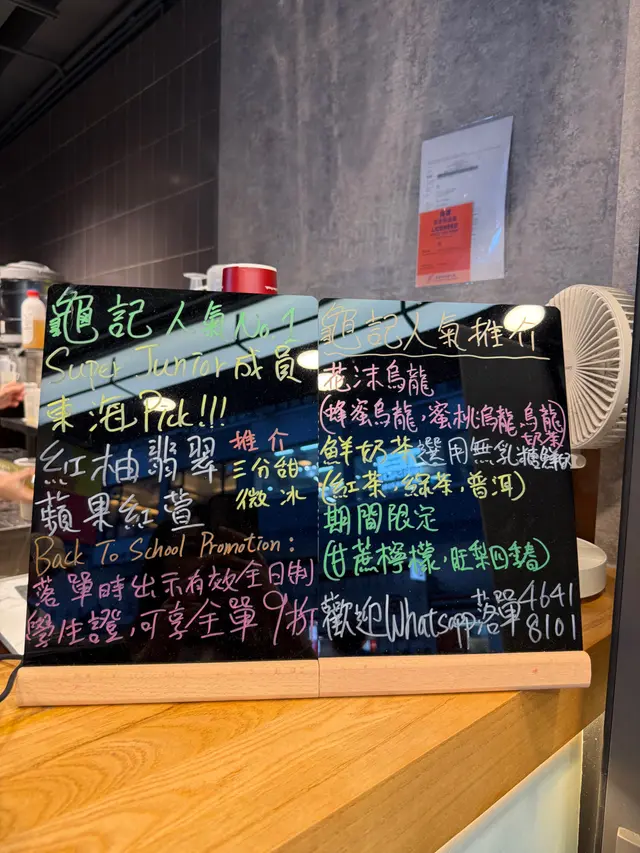 龜記人氣No.1
Super Junior成員
東海Pick!!!
紅柚翡翠
蘋果紅萱
推介
三分甜
微冰
Back To School Promotion:
落單時出示有效全日制
學生證,可享全單9折
龜記人氣推介
花沫烏龍
(蜂蜜烏龍,蜜桃烏龍,烏龍奶茶)
鮮奶茶選用無乳糖鮮奶
(紅茶,綠茶,普洱)
期間限定
(甘蔗檸檬,旺梨四季春)
歡迎Whatsapp落單4641
8101